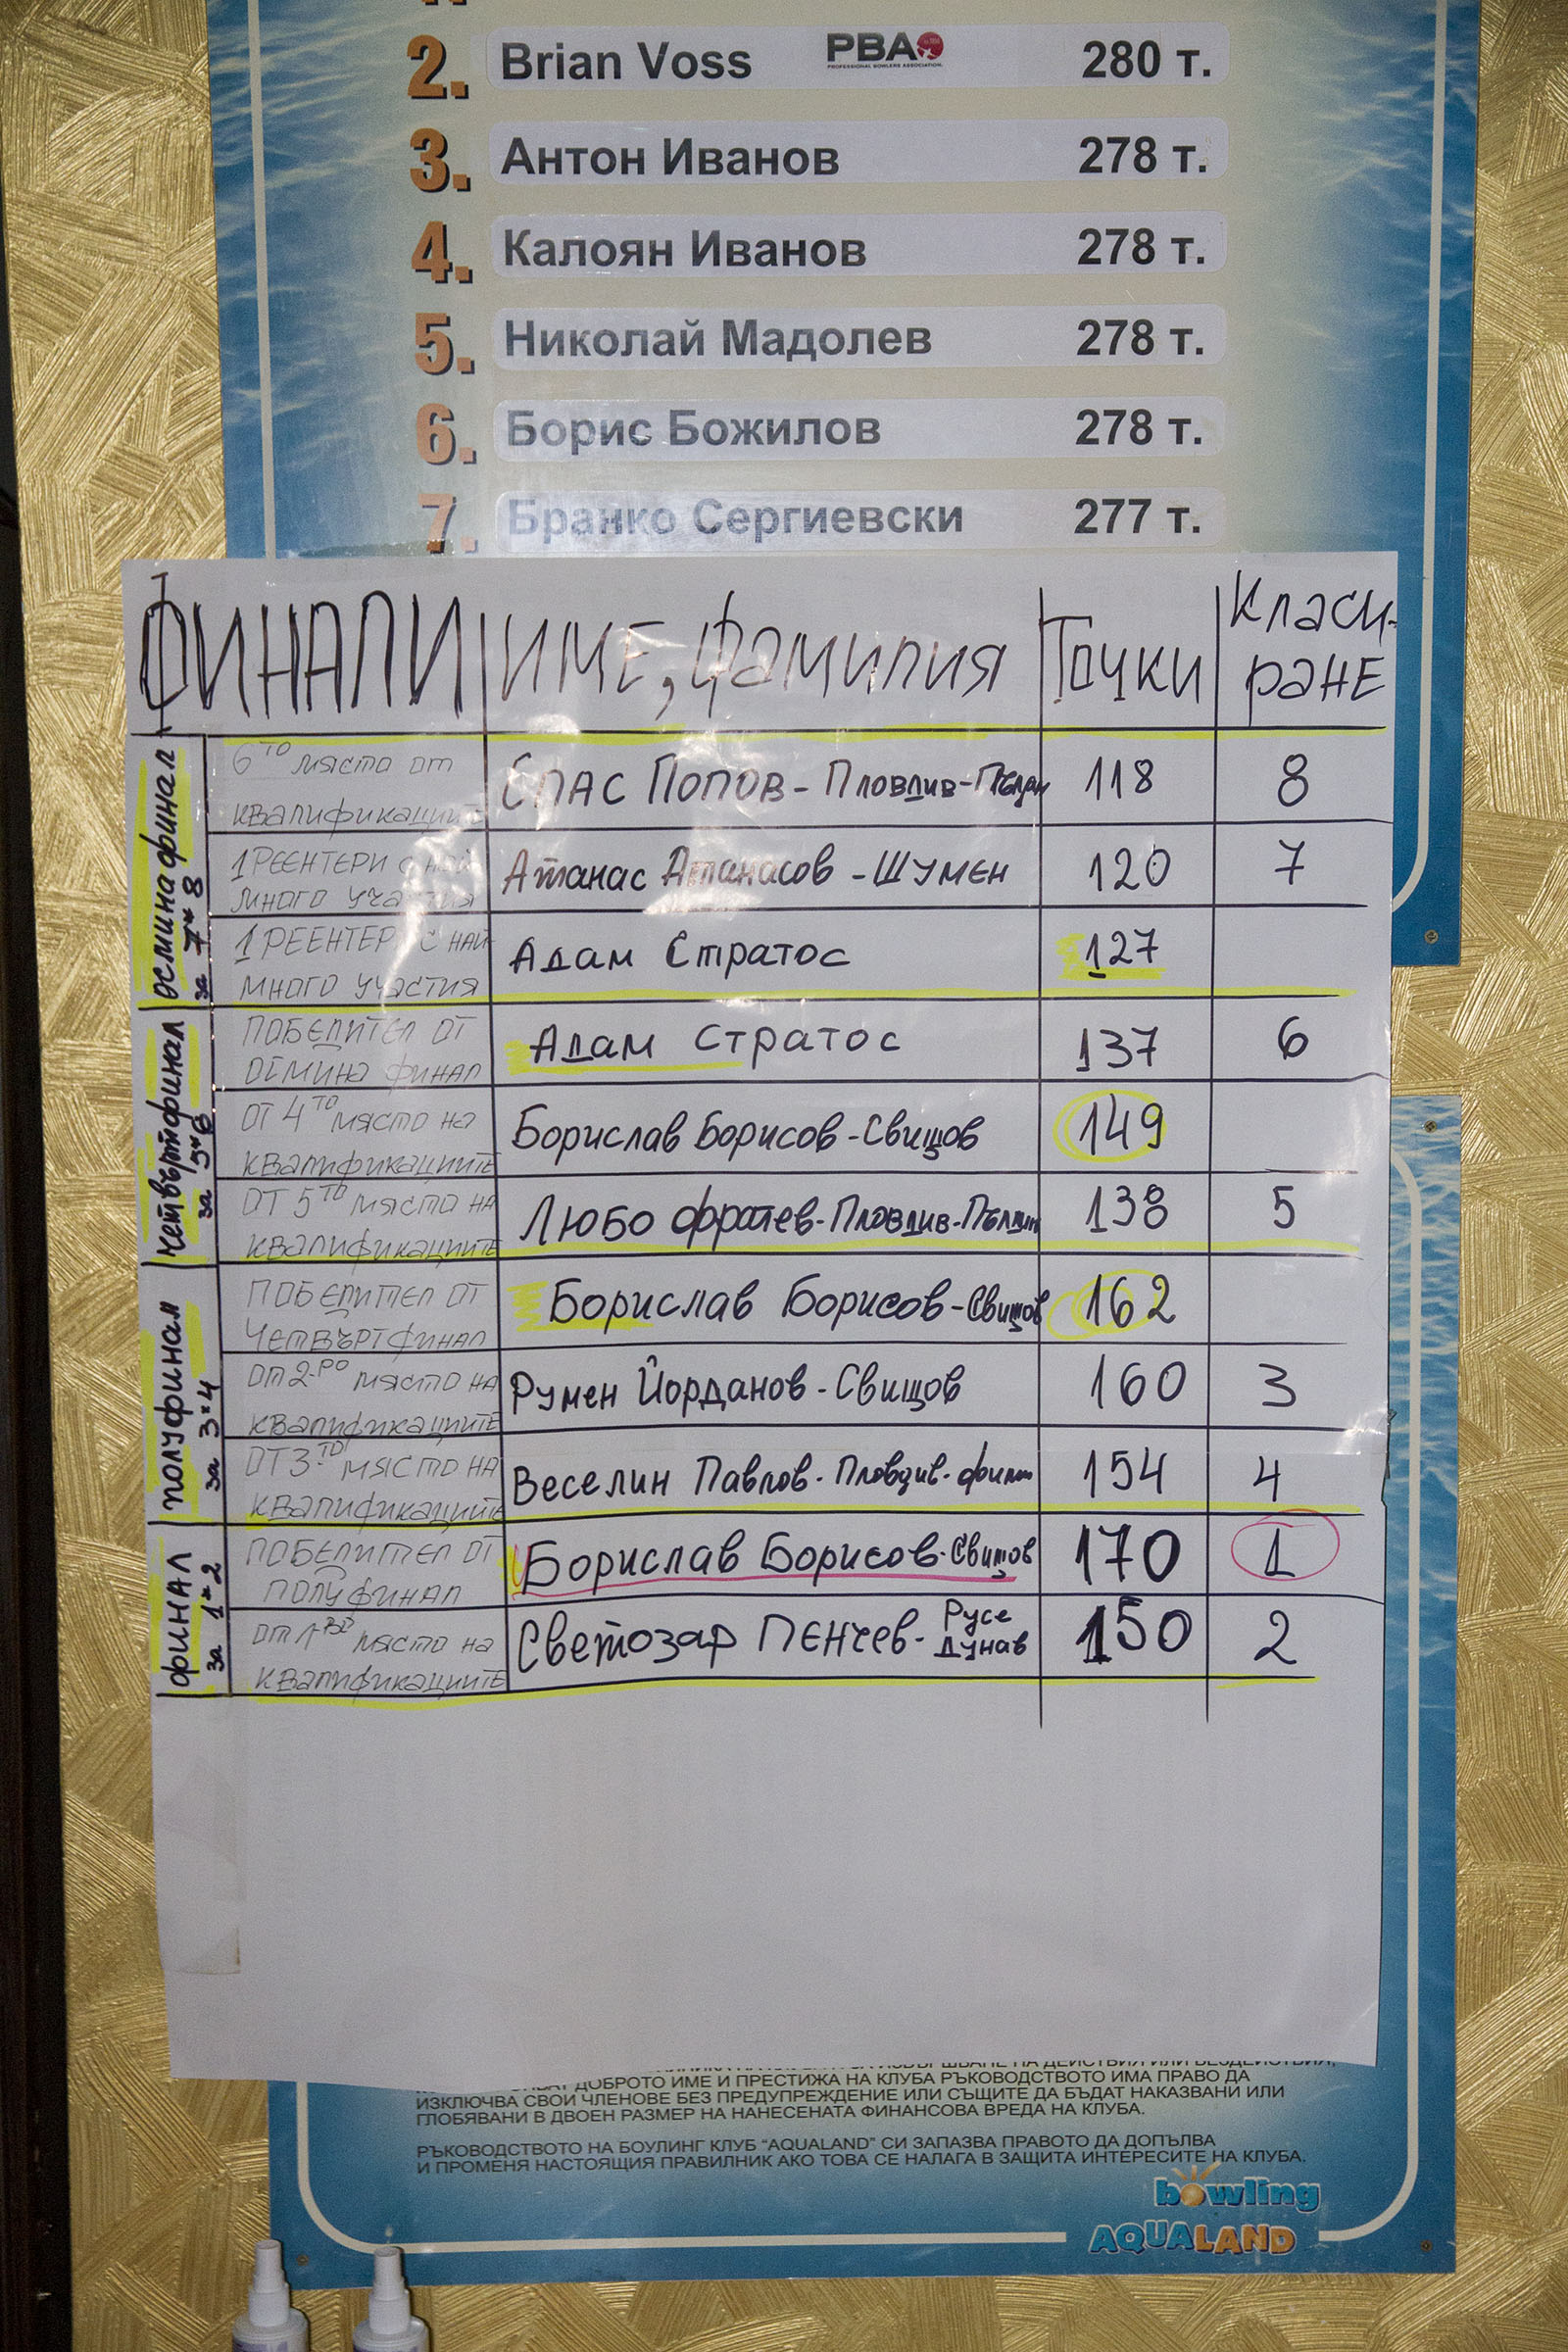 2. Brian Voss PBA 280 т.
PROFESSIONAL BOWLERS ASSOCIATION
3. Антон Иванов 278 т.
4. Калоян Иванов 278 т.
5. Николай Мадолев 278 т.
6. Борис Божилов 278 т.
7. Бранко Сергиевски 277 т.
ФИНАЛИ ИМЕ, фамилия Точки Класи-
ране
осмина финал
за 7* 8
6ТО място от
квалификациите
Спас Попов - Пловдив - 118 8
1 РЕЕНТЕРИ с най
много участия
Атанас Атанасов - Шумен 120 7
1 РЕЕНТЕР с най-
много участия
Адам Стратос 127
четвъртфинал
за 5*6
победител от
осмина финал
Адам Стратос 137 6
от 4ТО място на
квалификациите
Борислав Борисов - Свищов 149
от 5ТО място на
квалификациите
Любо Фратев - Пловдив - 138 5
полуфинал
за 3*4
победител от
четвъртфинал
Борислав Борисов - Свищов 162
от 2-РО място на
квалификациите
Румен Йорданов - Свищов 160 3
от 3-ТО място на
квалификациите
Веселин Павлов - Пловдив - 154 4
финал
за 1*2
победител от
полуфинал
Борислав Борисов - Свищов 170 1
от 1-ВО място на
квалификациите
Светозар Пенчев - Русе
Дунав 150 2
ДОБРОТО ИМЕ И ПРЕСТИЖА НА КЛУБА РЪКОВОДСТВОТО ИМА ПРАВО ДА
ИЗКЛЮЧВА СВОИ ЧЛЕНОВЕ БЕЗ ПРЕДУПРЕЖДЕНИЕ ИЛИ СЪЩИТЕ ДА БЪДАТ НАКАЗВАНИ ИЛИ
ГЛОБЯВАНИ В ДВОЕН РАЗМЕР НА НАНЕСЕНАТА ФИНАНСОВА ВРЕДА НА КЛУБА.
РЪКОВОДСТВОТО НА БОУЛИНГ КЛУБ "AQUALAND" СИ ЗАПАЗВА ПРАВОТО ДА ДОПЪЛВА
И ПРОМЕНЯ НАСТОЯЩИЯ ПРАВИЛНИК АКО ТОВА СЕ НАЛАГА В ЗАЩИТА ИНТЕРЕСИТЕ НА КЛУБА.
bowling
AQUALAND